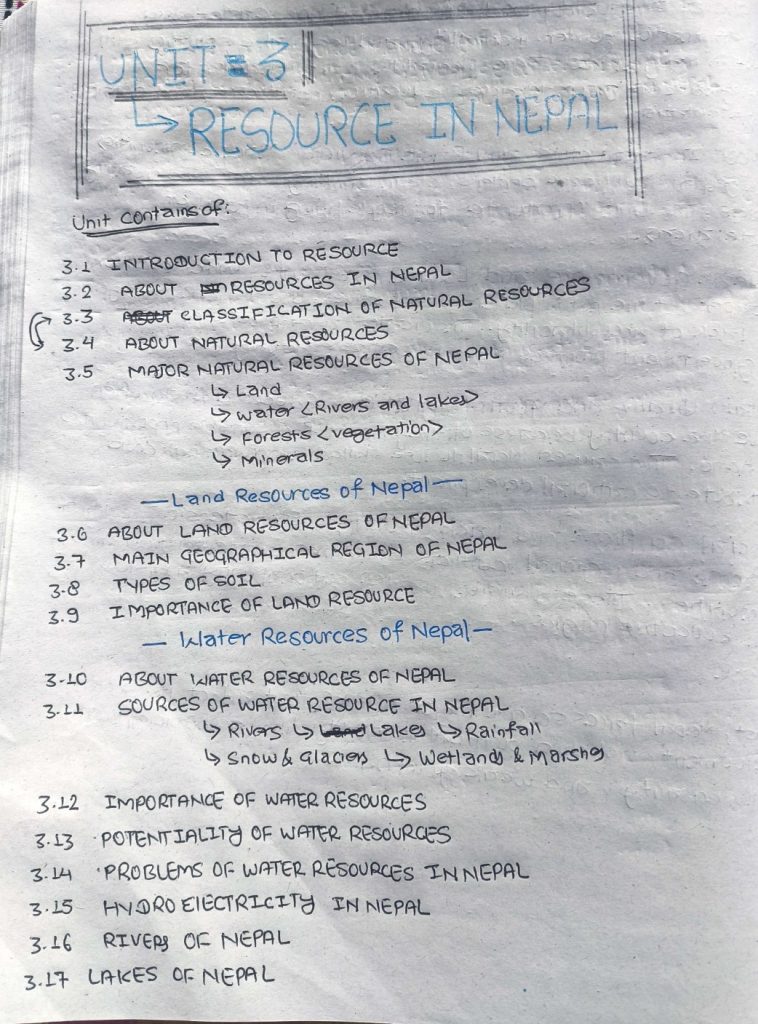 UNIT = 3
↳ RESOURCE IN NEPAL
Unit contains of:
3.1 INTRODUCTION TO RESOURCE
3.2 ABOUT RESOURCES IN NEPAL
3.3 CLASSIFICATION OF NATURAL RESOURCES
3.4 ABOUT NATURAL RESOURCES
3.5 MAJOR NATURAL RESOURCES OF NEPAL
↳ Land
↳ water <Rivers and lakes>
↳ Forests <vegetation>
↳ Minerals
— Land Resources of Nepal —
3.6 ABOUT LAND RESOURCES OF NEPAL
3.7 MAIN GEOGRAPHICAL REGION OF NEPAL
3.8 TYPES OF SOIL
3.9 IMPORTANCE OF LAND RESOURCE
— Water Resources of Nepal —
3.10 ABOUT WATER RESOURCES OF NEPAL
3.11 SOURCES OF WATER RESOURCE IN NEPAL
↳ Rivers ↳ Lakes ↳ Rainfall
↳ Snow & Glaciers ↳ Wetlands & Marshes
3.12 IMPORTANCE OF WATER RESOURCES
3.13 POTENTIALITY OF WATER RESOURCES
3.14 PROBLEMS OF WATER RESOURCES IN NEPAL
3.15 HYDRO ELECTRICITY IN NEPAL
3.16 RIVERS OF NEPAL
3.17 LAKES OF NEPAL